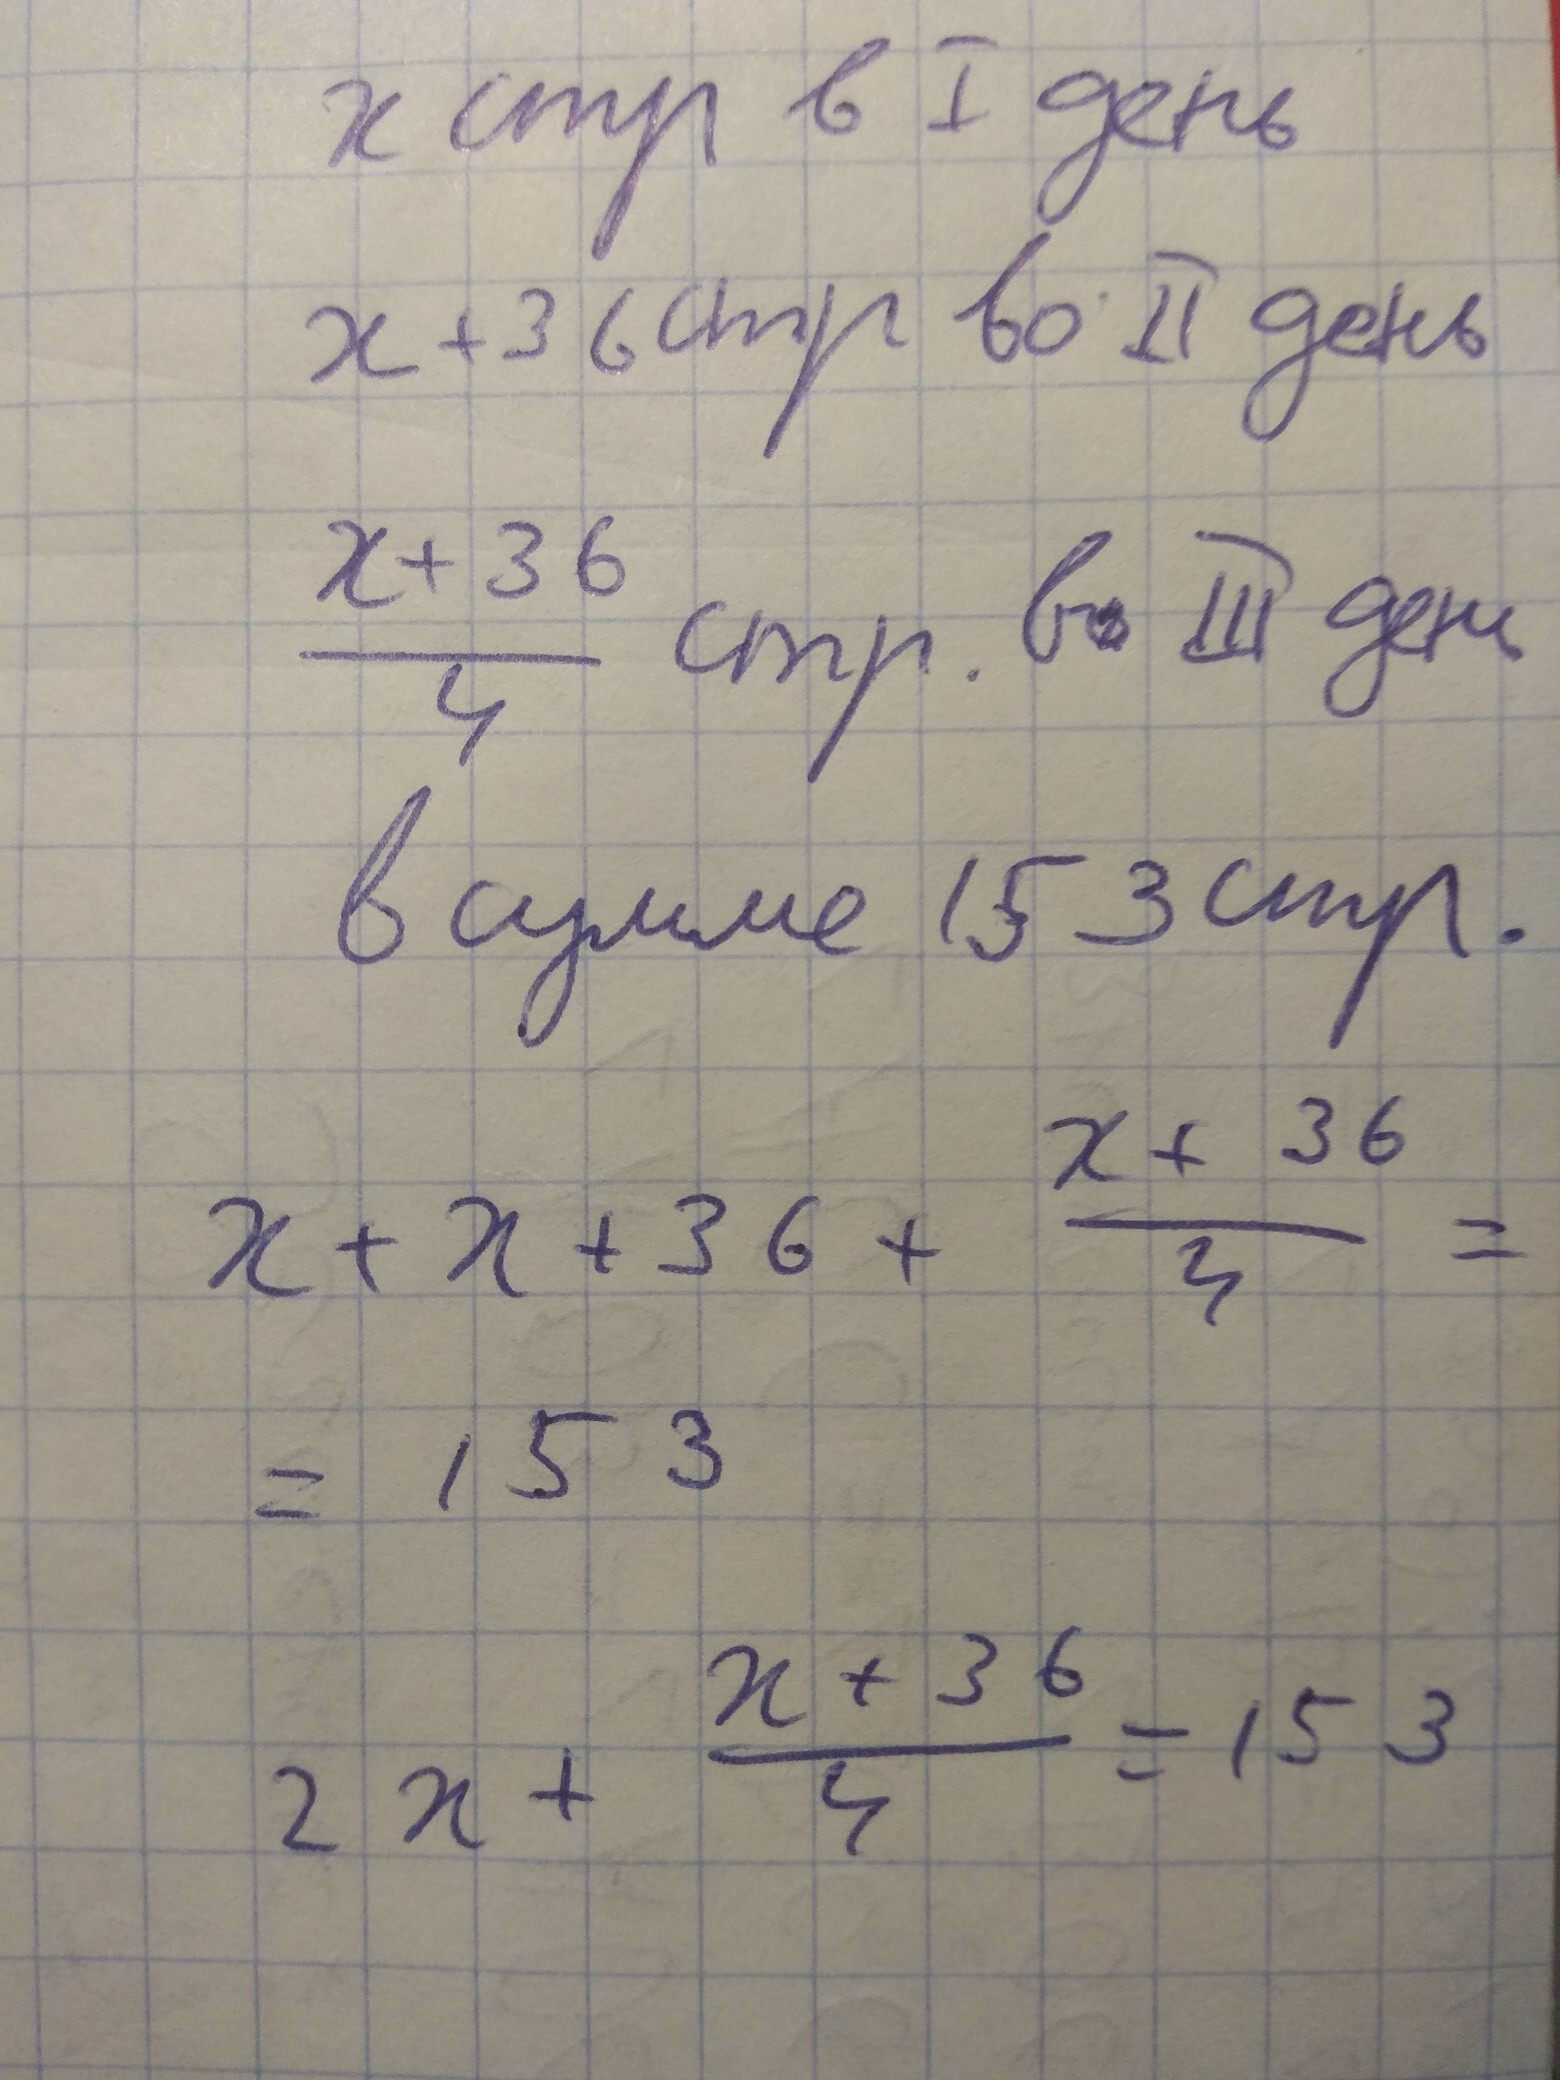 x стр в I день
x + 36 стр во II день
x + 36
4
стр. в III день
в сумме 153 стр.
x + x + 36 + (x + 36)/4 =
= 153
2x + (x + 36)/4 = 153